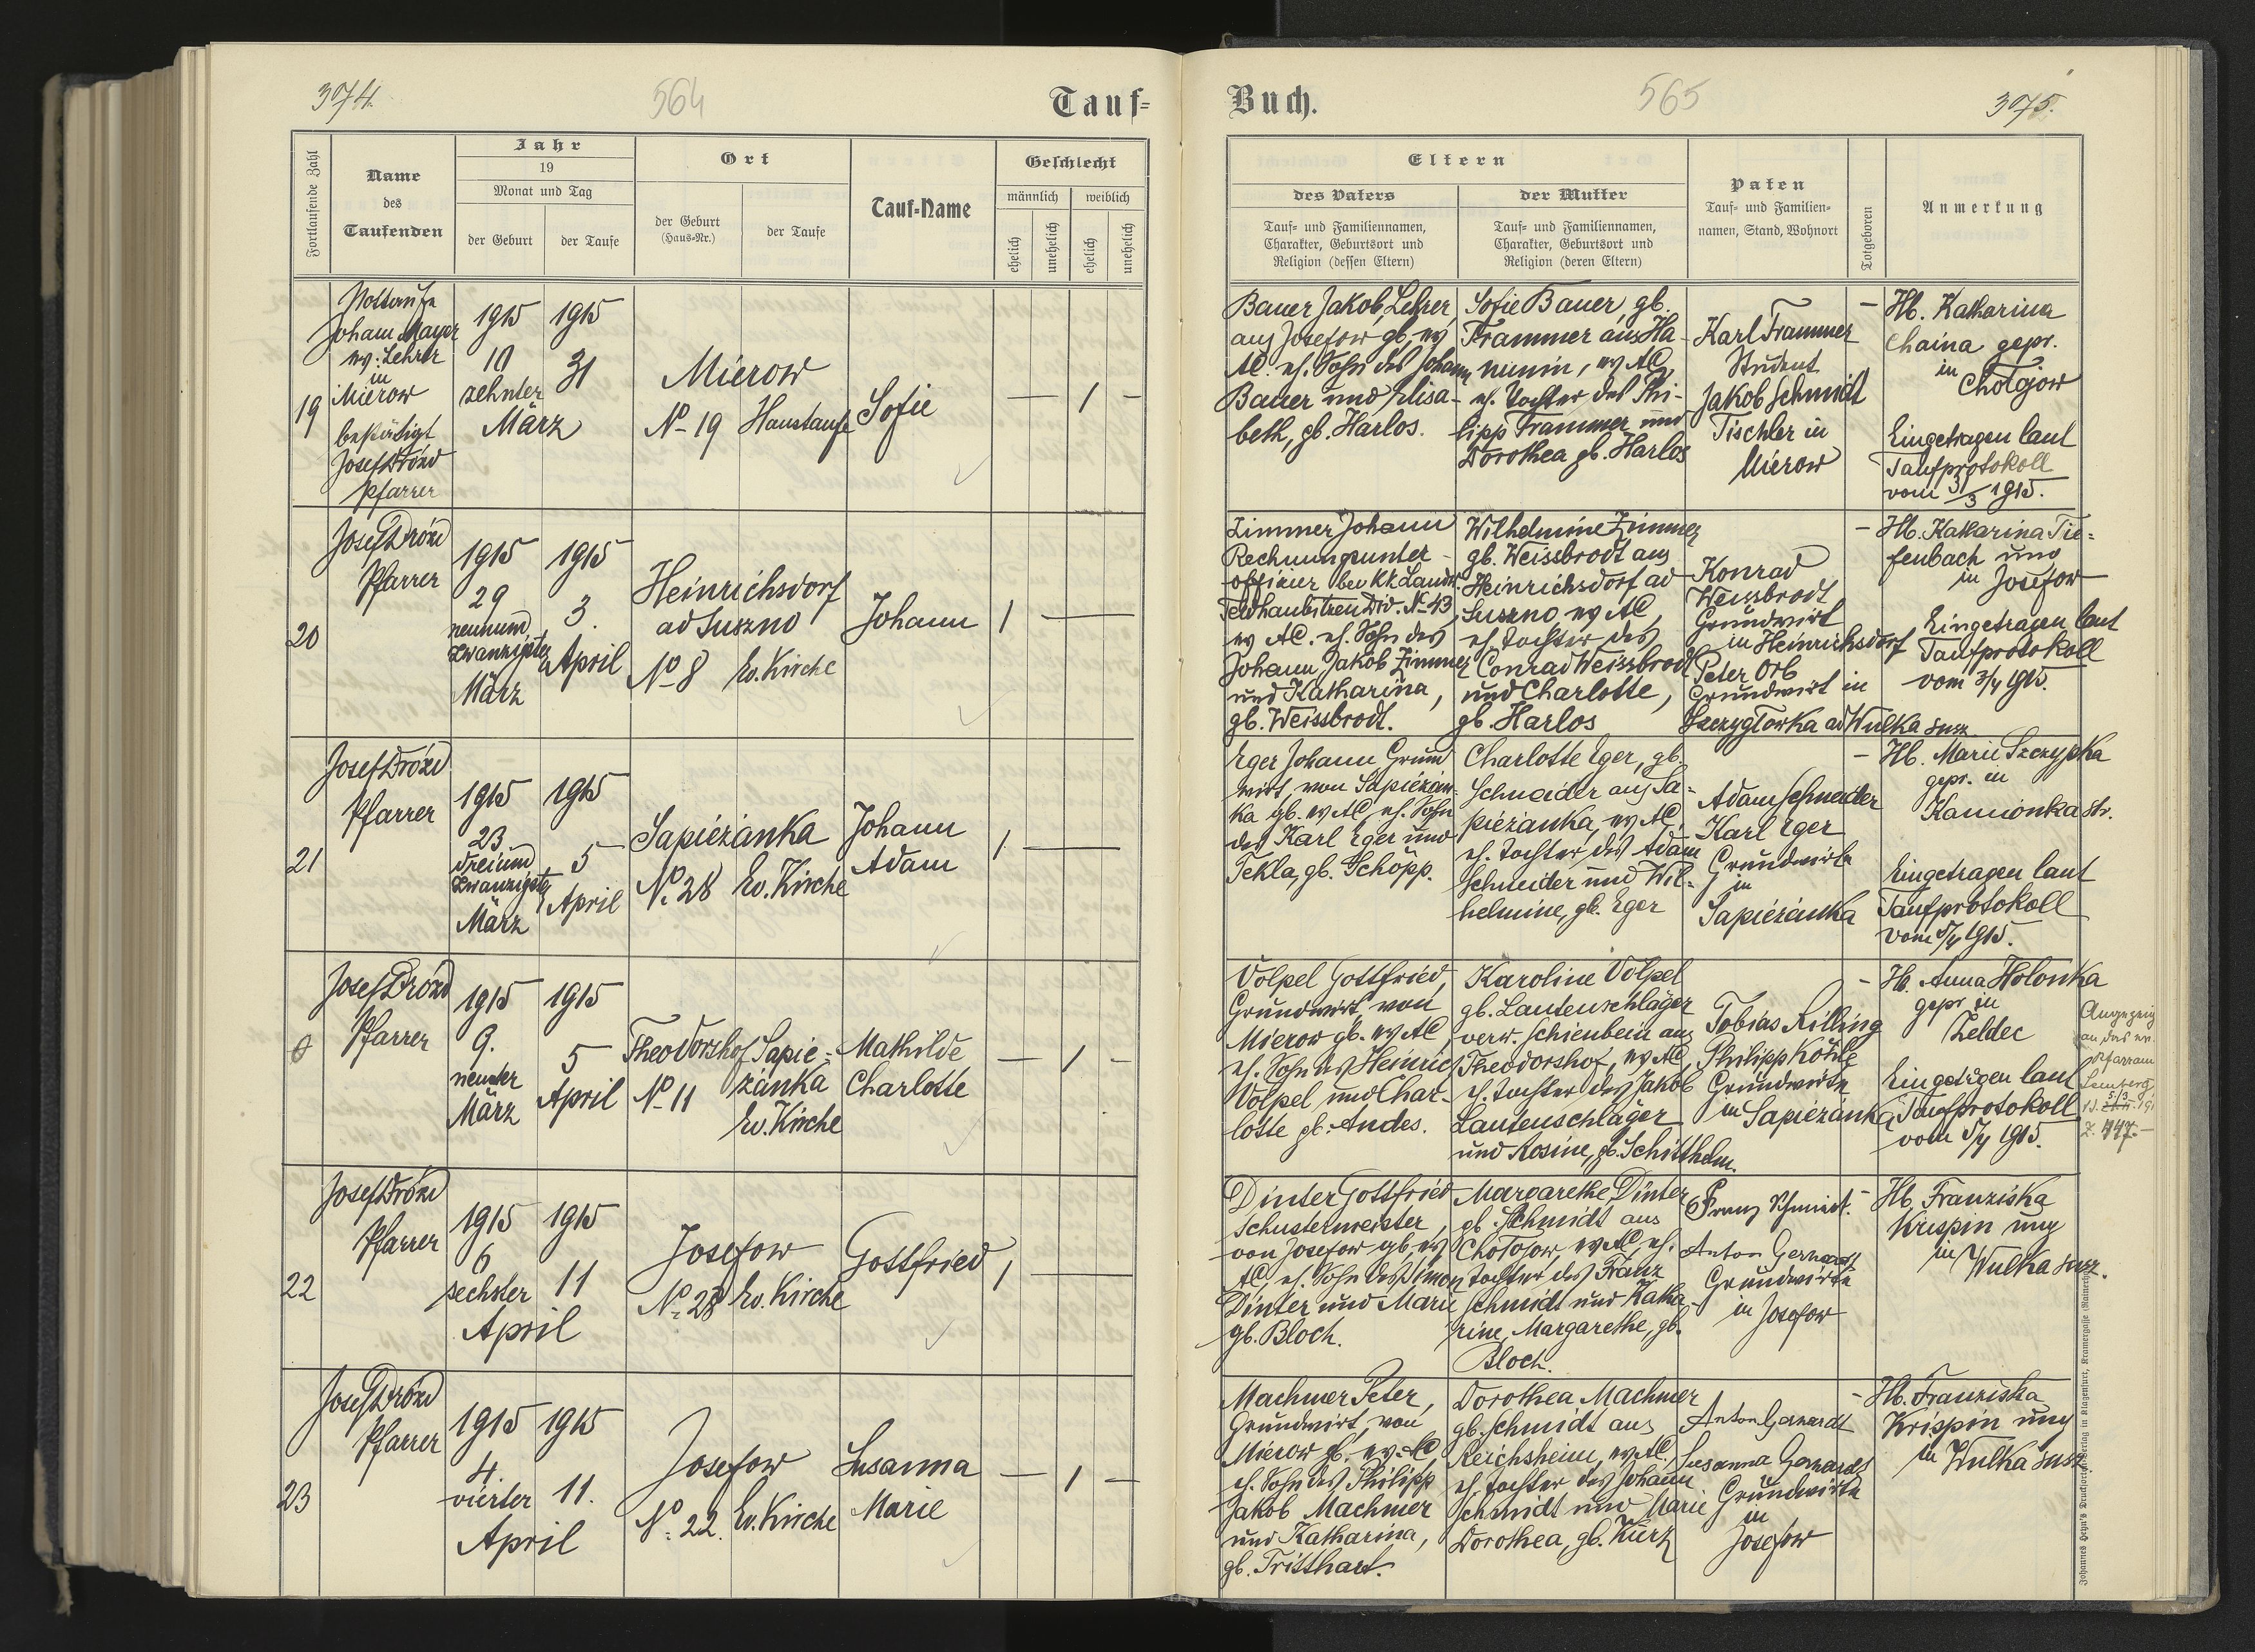 3074.
564
Tauf=
Fortlaufende Zahl
Name
des
Taufenden
Jahr
19
Monat und Tag
der Geburt
der Taufe
Ort
der Geburt
(Haus-Nr.)
der Taufe
Tauf-Name
Geschlecht
männlich
weiblich
ehelich
unehelich
ehelich
unehelich
19
Nottaufe
Johann Mayer
ev. Lehrer
in
Mierow
bestätigt
Josef Drózd
Pfarrer
1915
10
zehnter
März
1915
31
Mierow
No 19
Haustaufe
Sofie
— 1 —
20
Josef Drózd
Pfarrer
1915
29
neunund
zwanzigster
März
1915
3.
April
Heinrichsdorf
ad Suszno
No 8
Ev. Kirche
Johann
1 —
21
Josef Drózd
Pfarrer
1915
23
dreiund
zwanzigster
März
1915
5
April
Sapiezanka
No 28
Ev. Kirche
Johann
Adam
1 —
0
Josef Drózd
Pfarrer
1915
9.
neunter
März
1915
5
April
Theodorshof
No 11
Sapie=
zanka
Ev. Kirche
Mathilde
Charlotte
— 1 —
22
Josef Drózd
Pfarrer
1915
6
sechster
April
1915
11
Josefow
No 28
Ev. Kirche
Gottfried
1 —
23
Josef Drózd
Pfarrer
1915
4.
vierter
April
1915
11.
Josefow
No 22.
Ev. Kirche
Susanna
Marie
— 1 —
Buch.
565
3075.
Eltern
des Vaters
Tauf= und Familiennamen,
Charakter, Geburtsort und
Religion (dessen Eltern)
der Mutter
Tauf= und Familiennamen,
Charakter, Geburtsort und
Religion (deren Eltern)
Paten
Tauf= und Familien=
namen, Stand, Wohnort
Totgeboren
Anmerkung
Bauer Jakob, Lehrer,
aus Josefow gb, ev
AC. eh. Sohn des Johann
Bauer und Elisa-
beth, gb. Harlos.
Sofie Bauer, gb.
Trammer aus Ha-
nunin, ev AC,
eh. Tochter des Phi-
lipp Trammer und
Dorothea gb. Harlos
Karl Trammer
Student
Jakob Schmidt
Tischler in
Mierow
—
Hb. Katharina
Chaina gepr.
in
Cholojow
Eingetragen laut
Taufprotokoll
vom 31/3 1915.
Zimmer Johann
Rechnungsunter-
offizier bei kk. Landw.
Feldhaubitzen Div. No 43,
ev AC. eh. Sohn des
Johann Jakob Zimmer
und Katharina,
gb. Weissbrodt.
Wilhelmine Zimmer
gb. Weissbrodt aus
Heinrichsdorf ad
Suszno ev AC,
eh. Tochter des
Conrad Weissbrodt
und Charlotte,
gb. Harlos
Konrad
Weissbrodt
Grundwirt
in Heinrichsdorf
Peter Orb
Grundwirt in
Szczyglowka ad Wulka susz
—
Hb. Katharina Tie=
fenbach ung
in Josefow
Eingetragen laut
Taufprotokoll
vom 3/4 1915.
Eger Johann Grund
wirt, von Sapiezan-
ka gb. ev AC, eh. Sohn
des Karl Eger und
Tekla, gb. Schöpp.
Charlotte Eger, gb.
Schneider aus Sa=
piezanka, ev AC,
eh. Tochter des Adam
Schneider und Wil=
helmine, gb. Eger
Adam Schneider
Karl Eger
Grundwirte
in
Sapiezanka
—
Hb. Marie Szczypka
gepr. in
Kamionka str.
Eingetragen laut
Taufprotokoll
vom 5/4 1915.
Volpel Gottfried,
Grundwirt, von
Mierow gb. ev AC,
eh. Sohn des Heinrich
Volpel und Char-
lotte gb. Andes.
Karoline Volpel
gb. Lautenschläger
verw. Schienbein aus
Theodorshof, ev AC,
eh. Tochter des Jakob
Lautenschläger
und Rosine, gb. Schitthelm.
Tobias Rilling
Philipp Köhle
Grundwirte
in Sapiezanka
—
Hb. Anna Holonka
gepr. in
Zeldec
Eingetragen laut
Taufprotokoll
vom 5/4 1915.
Angezeig
an das ev.
Pfarram
Lemberg
Z. 447.—
Dinter Gottfried
Schustermeister,
von Josefow gb, ev
AC, eh. Sohn des Simon
Dinter und Marie
gb. Bloch.
Margarethe Dinter
gb. Schmidt aus
Cholojow, ev AC, eh.
Tochter des Franz
Schmidt und Katha-
rine, Margarethe, gb.
Bloch.
Franz Schmidt.
Anton Gerhardt
Grundwirte
in Josefow
—
Hb. Franziska
Krispin ung
in Wulka susz.
Machmer Peter,
Grundwirt, von
Mierow gb. ev. AC
eh. Sohn des Philipp
Jakob Machmer
und Katharina,
gb. Tritthart.
Dorothea Machmer
gb. Schmidt aus
Reichsheim, ev AC,
eh. Tochter des Johann
Schmidt und Marie
Dorothea, gb. Kurz
Anton Gerhardt
Susanna Gerhardt
Grundwirte
in
Josefow
—
Hb. Franziska
Krispin ung
in Wulka susz
Johannes Heyn's Druckortenverlag in Klagenfurt, Kramergasse